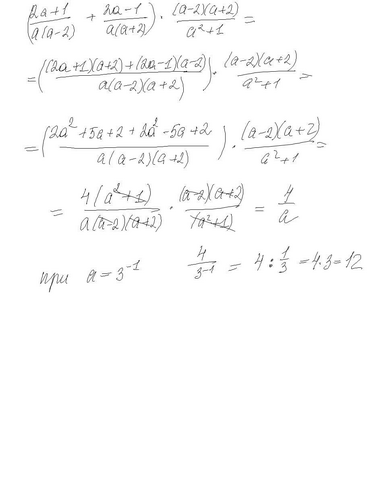 (2a+1/a(a-2) + 2a-1/a(a+2)) · (a-2)(a+2)/a²+1 =
= ((2a+1)(a+2)+(2a-1)(a-2)/a(a-2)(a+2)) · (a-2)(a+2)/a²+1 =
= (2a²+5a+2+2a²-5a+2/a(a-2)(a+2)) · (a-2)(a+2)/a²+1 =
= 4(a²+1)/a(a-2)(a+2) · (a-2)(a+2)/(a²+1) = 4/a
при a=3⁻¹ 4/3⁻¹ = 4:1/3 =4·3=12